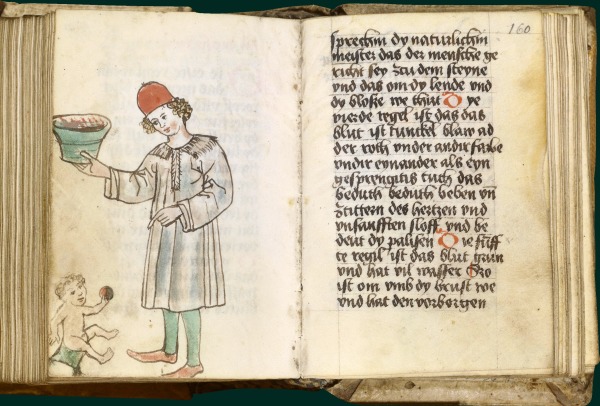 160
sprechin dy naturlichin
meister das der mensche ge
richt sey czu dem steyne
vnd das om dy lende vnd
dy blose we thut D ye
vierde regel ist das das
blut ist tunckel blaw ad
der roth vnder andir farbe
vndir eynander als eyn
gesprengitis tuch das
beduth beduth beben vn
czittern des hertzen vnd
vnsanfften sloff vnd be
deut dy palisen D ie funff
te regil ist das blut grun
vnd hat vil wasser So
ist om vmb dy brust we
vnd hat den vorborgen